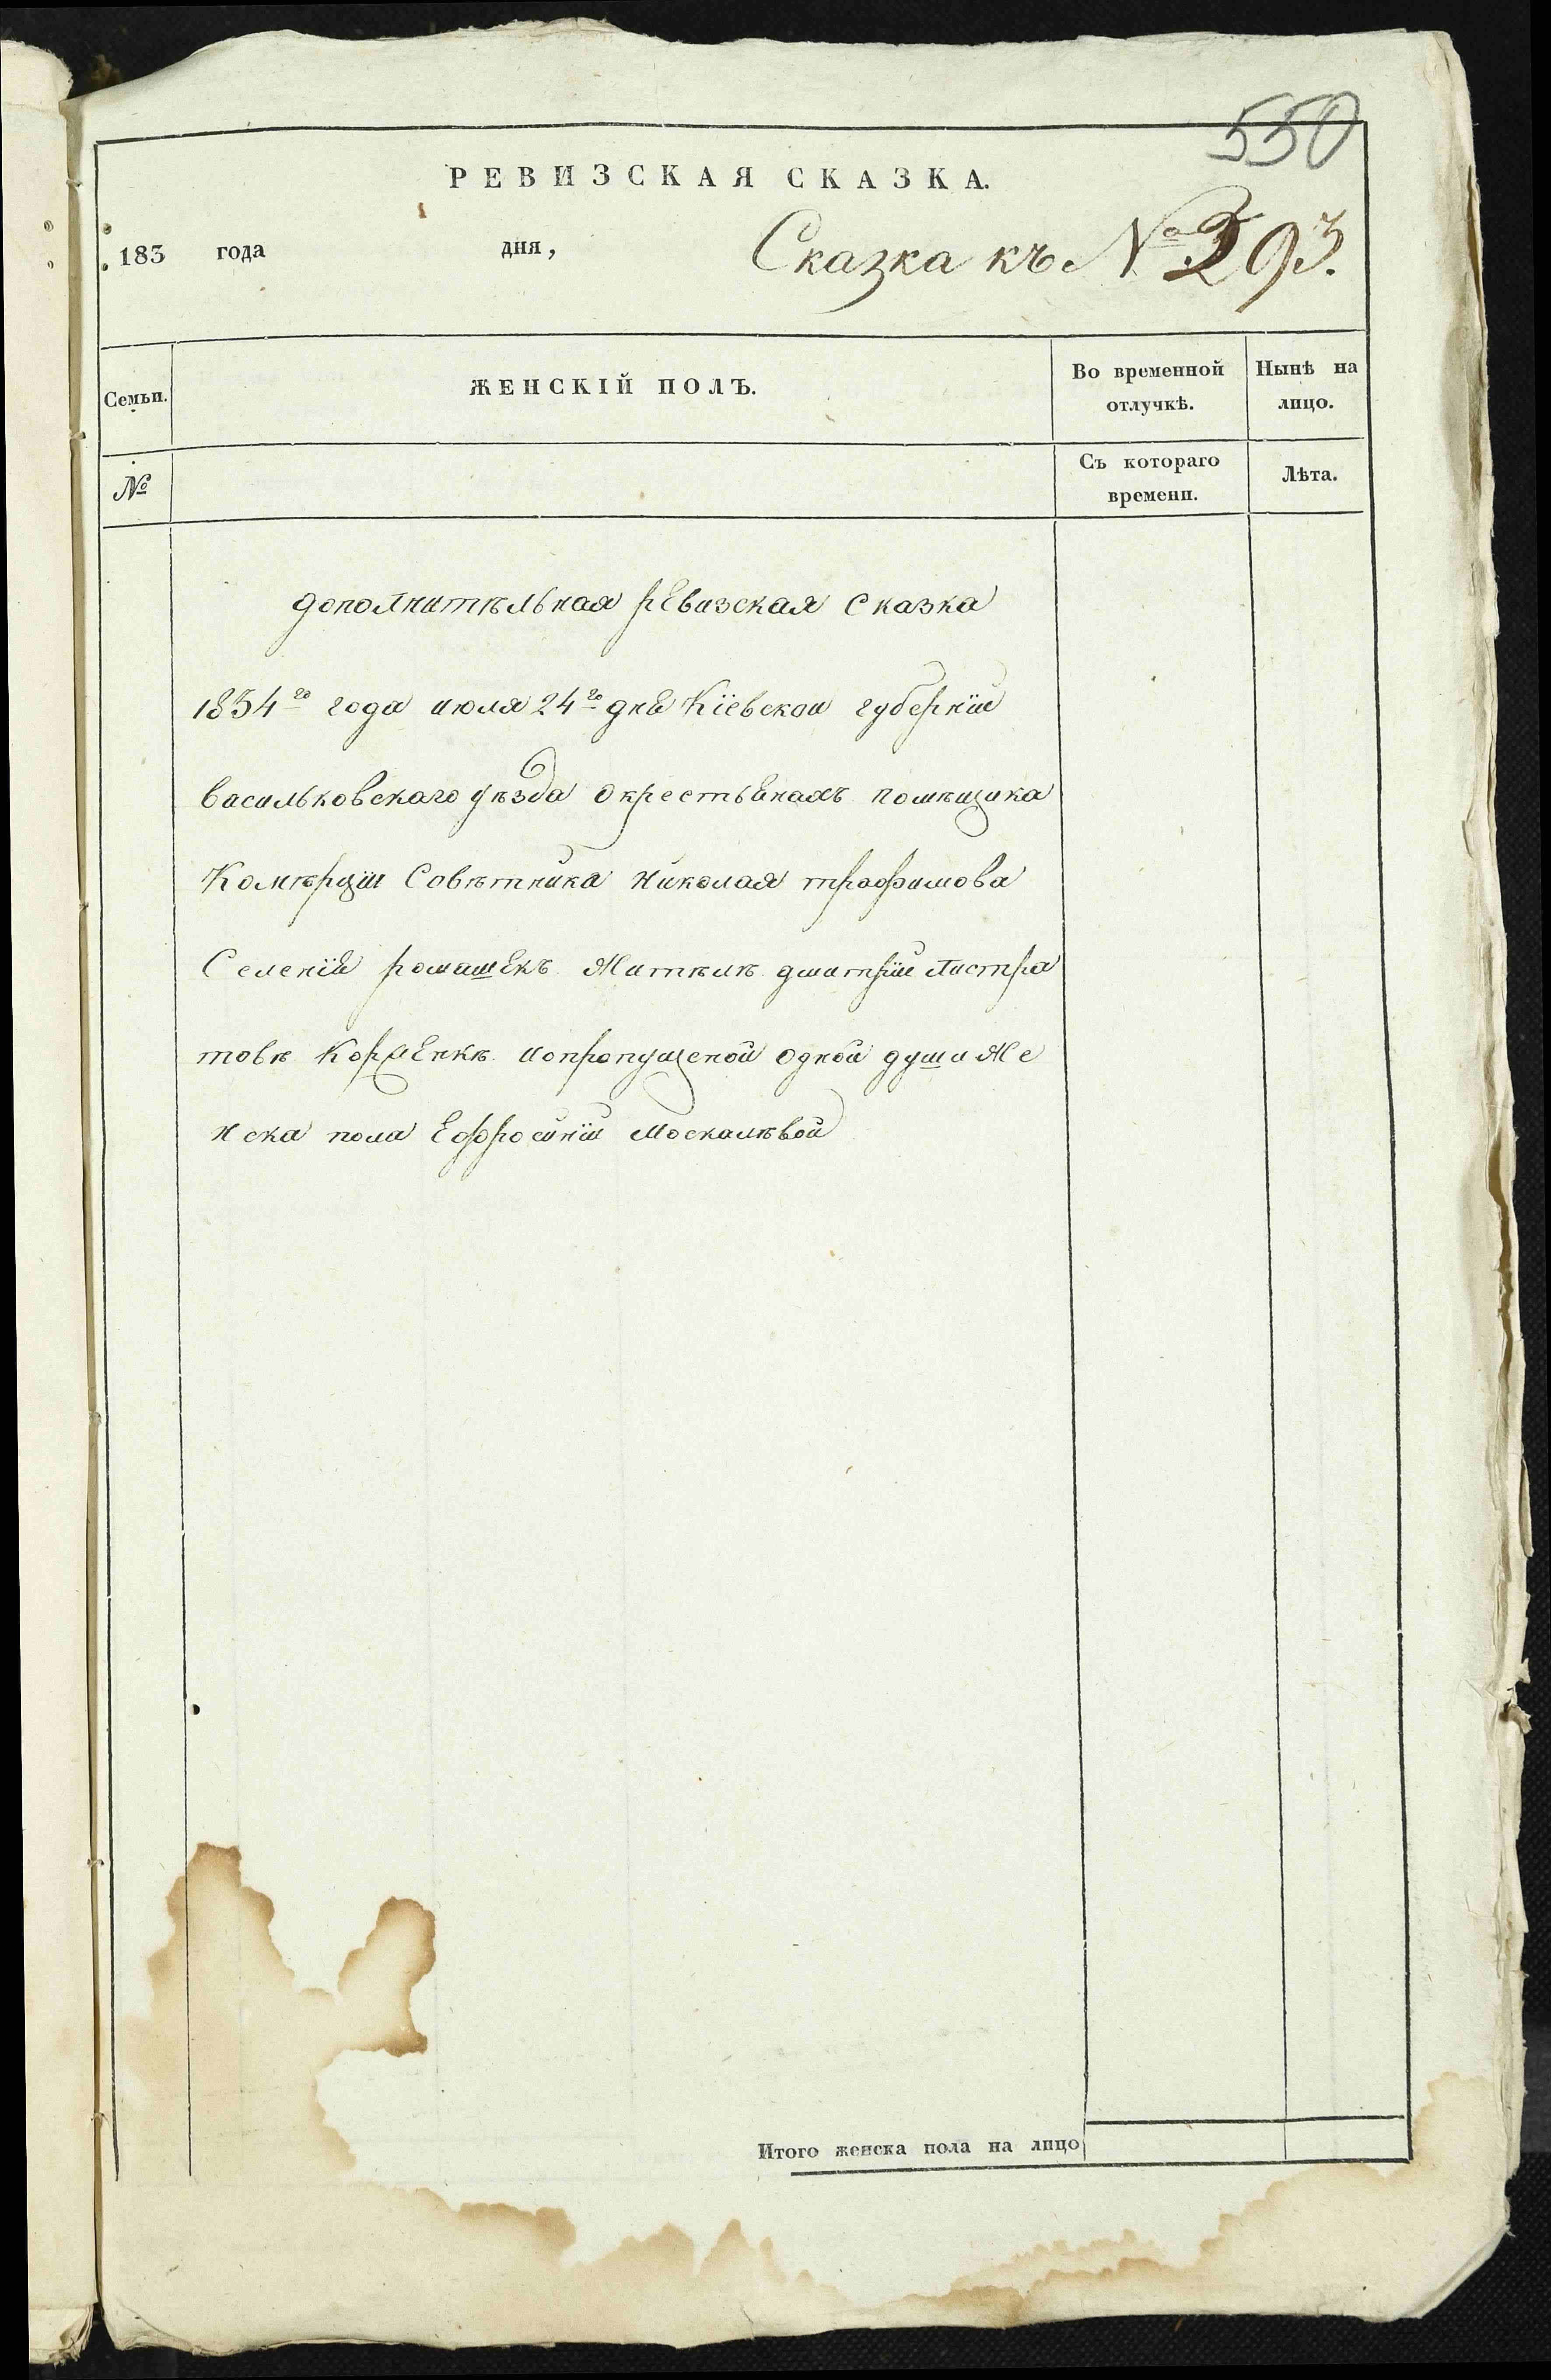 550
РЕВИЗСКАЯ СКАЗКА.
183 года дня, Сказка къ № 293.
Семьи. ЖЕНСКІЙ ПОЛЪ. Во временной отлучкѣ. Нынѣ на лицо.
№ Съ котораго времени. Лѣта.
дополнитѣльная ревизская сказка
1834го года июля 24го дня Кіевской губерніи
васильковскаго уѣзда окрестьянахъ помѣщика
Комѣрціи Совѣтника николая трофимова
Селенія ромашекъ Житѣлѣ дмитріи
товѣ ипропущеной одной души же
нска пола Ефросиніи Москалѣвой
Итого женска пола на лицо